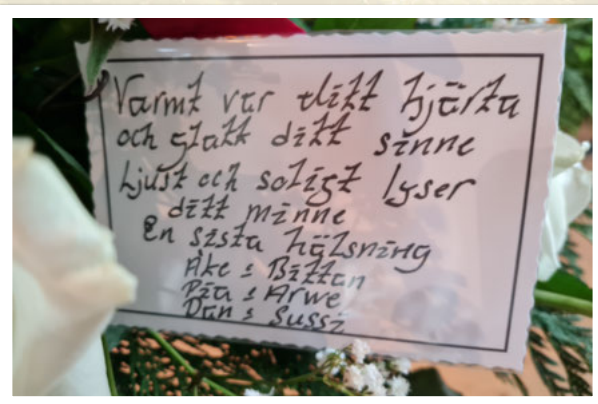 Varmt var ditt hjärta
och glatt ditt sinne
Ljust och soligt lyser
ditt minne
En sista hälsning
Åke & Bittan
Pia & Arwe
Dan & Sussi